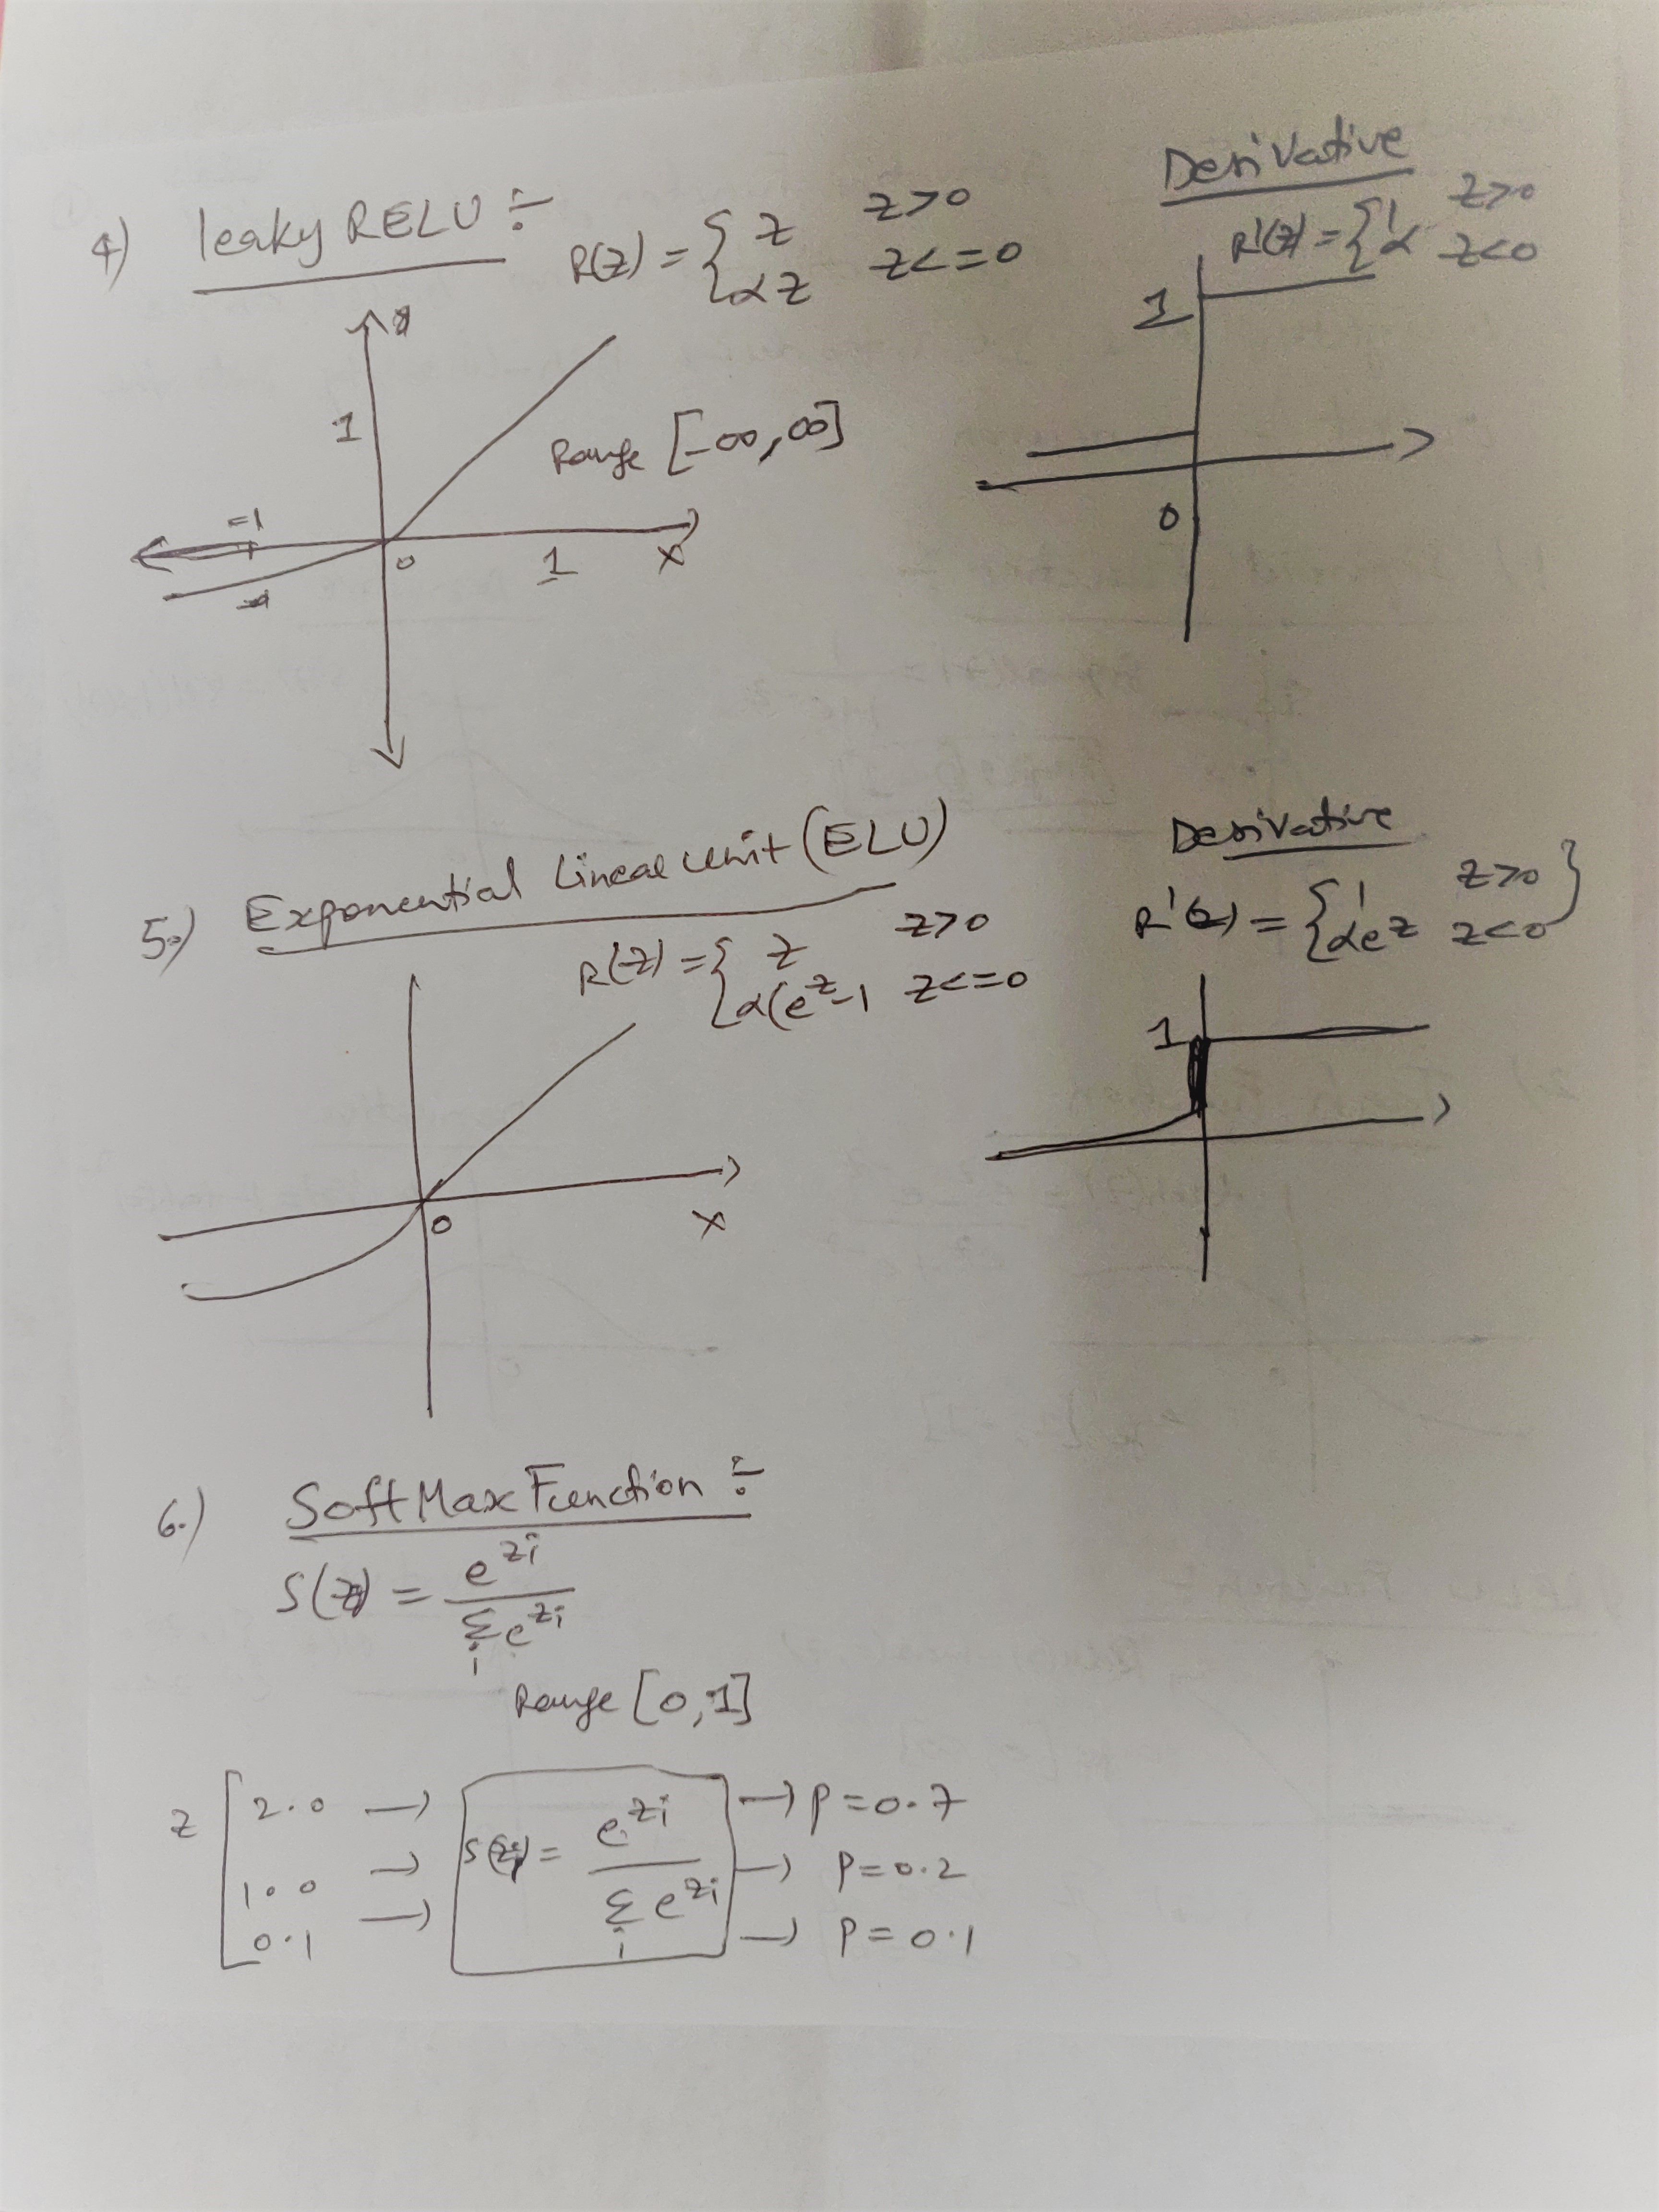 4) leaky RELU ÷
R(z) = { z z>0
αz z<=0
Derivative
R'(z) = { 1 z>0
α z<0
1
-1
0
1
x
Range [-∞,∞]
1
0
5.) Exponential Linear Unit (ELU)
R(z) = { z z>0
α(e^z-1 z<=0
Derivative
R'(z) = { 1 z>0 }
αe^z z<0
0
x
1
6.) SoftMax Function ÷
S(z) = e^zi / Σ_i e^zi
Range [0,1]
z [ 2.0 →
1.0 →
0.1 →
S(zi) = e^zi / Σ_i e^zi
→ P=0.7
→ P=0.2
→ P=0.1